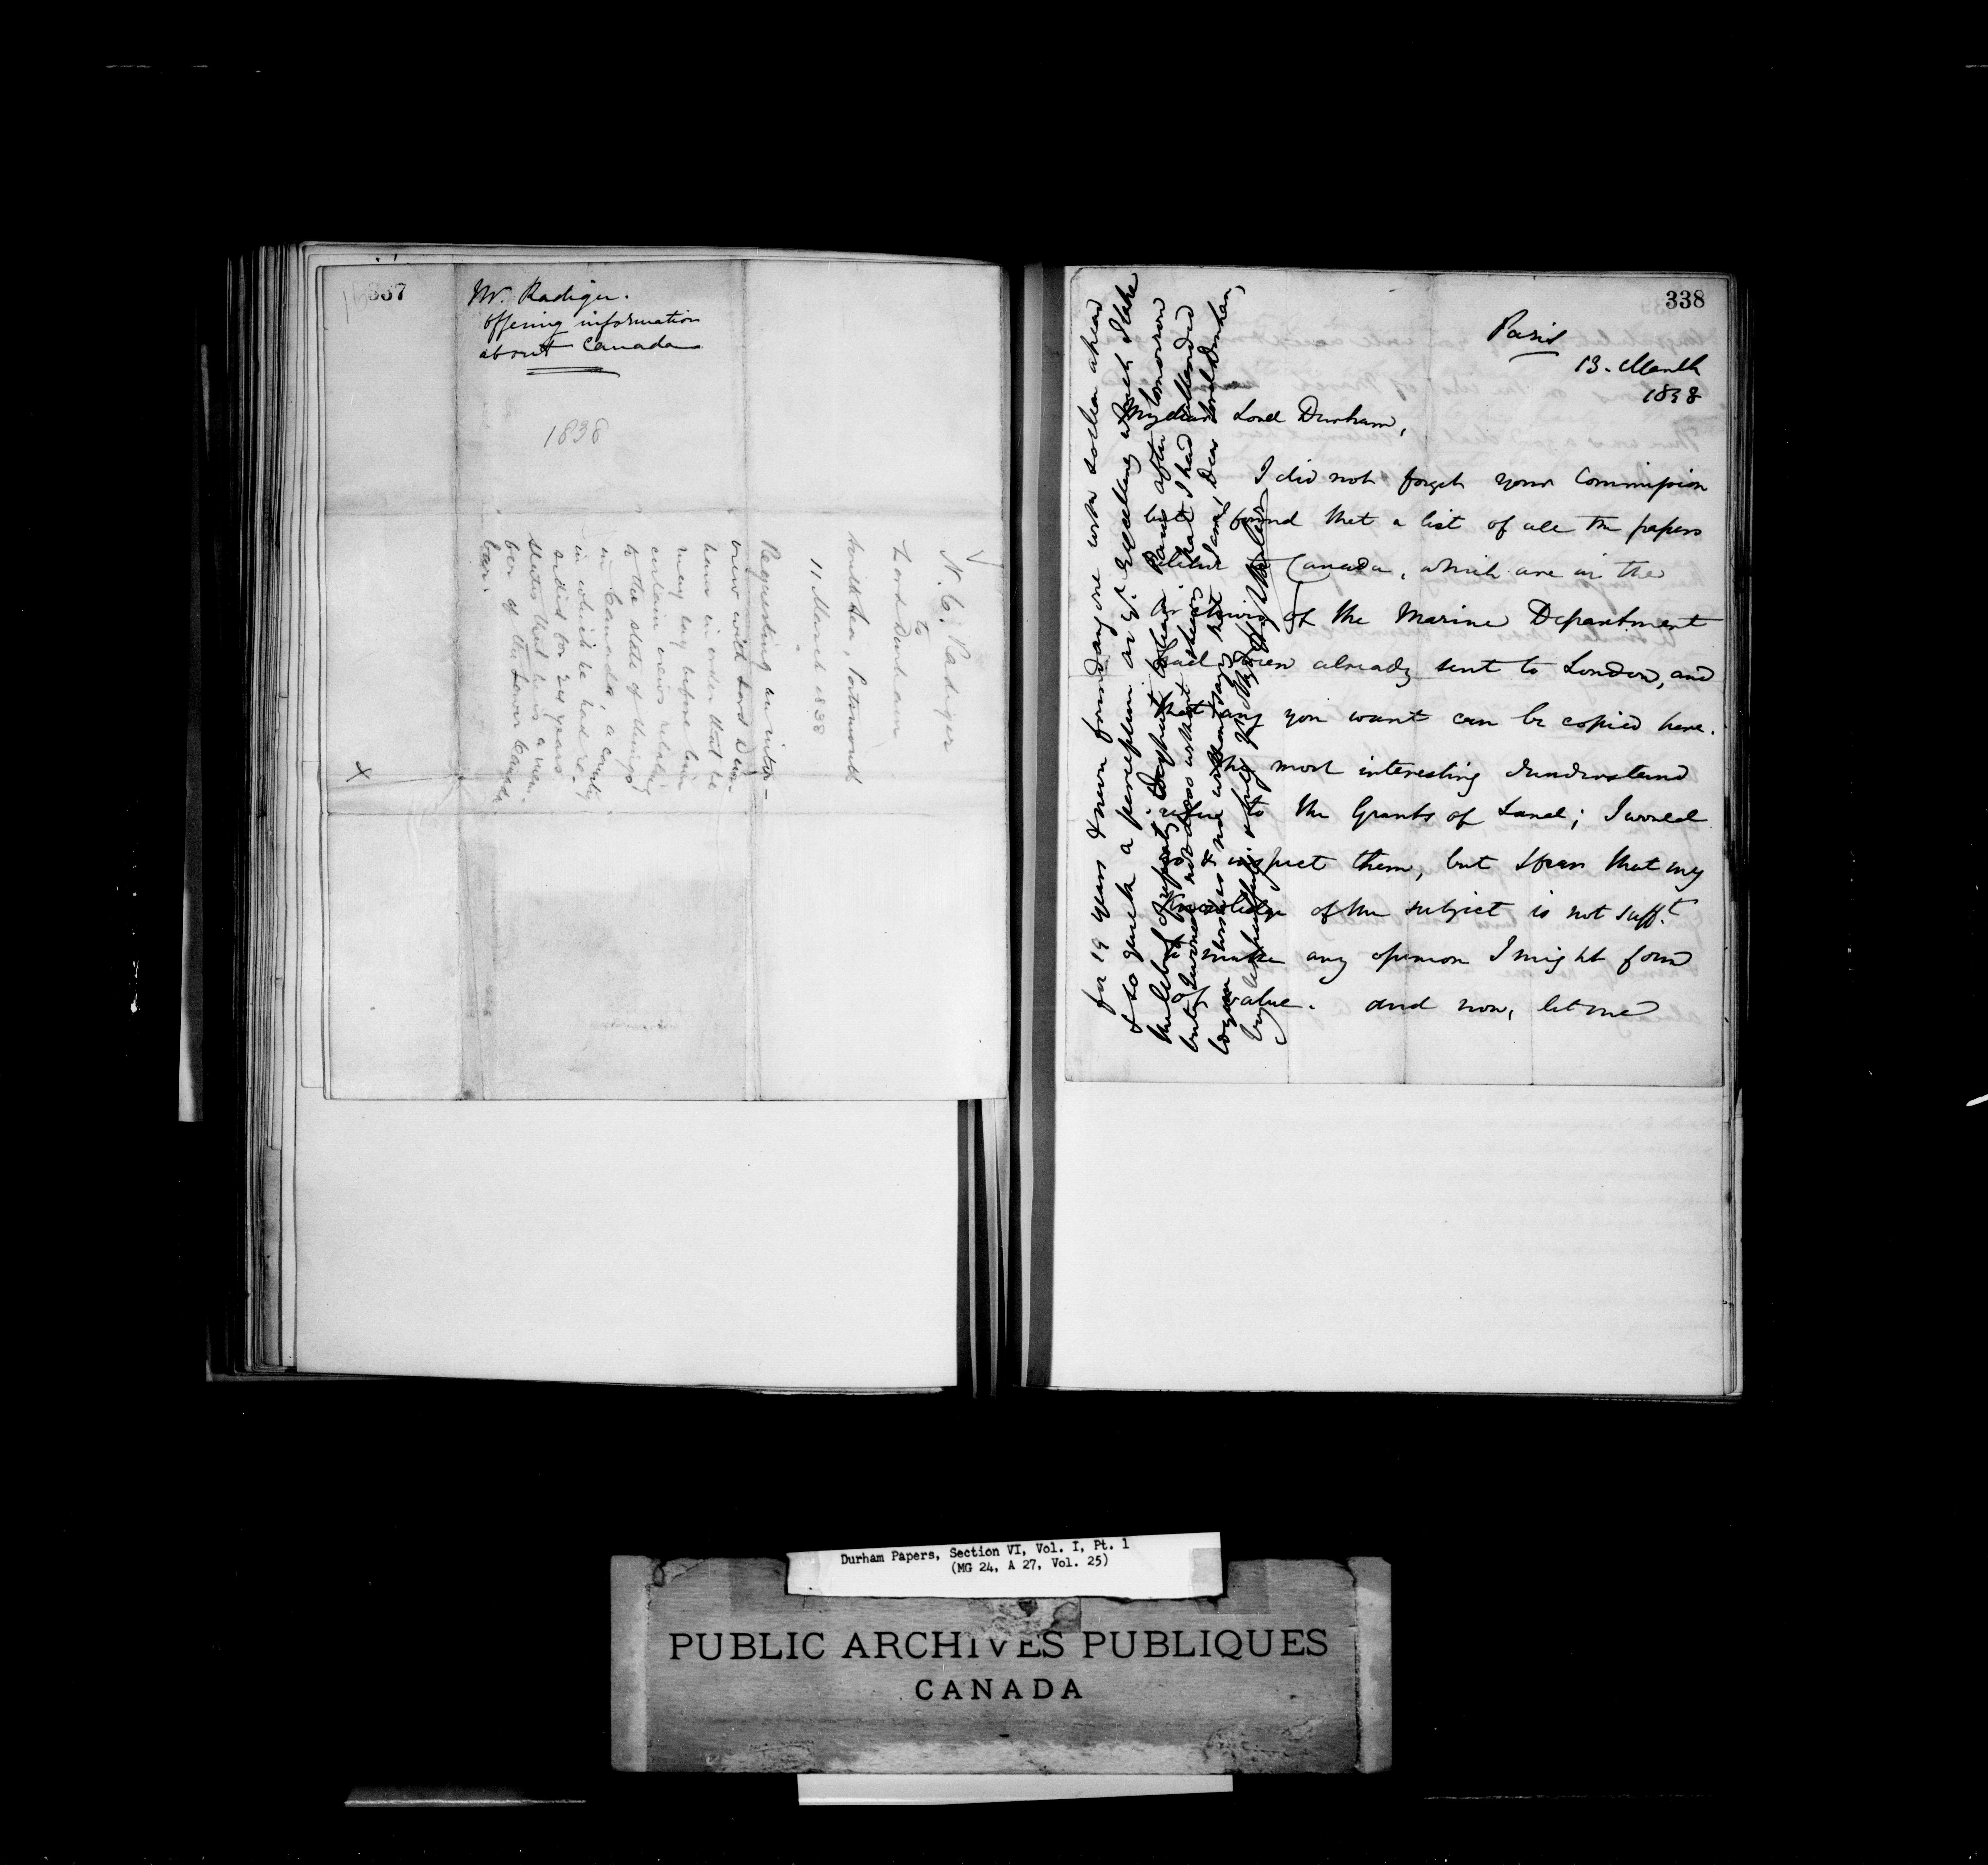 337
Mr. Radiger.
offering information
about Canada
1838
N. C. Radiger
to
Lord Durham
Southsea, Portsmouth
11 March 1838
Requesting an inter-
view with Lord Dur-
ham in order that he
may lay before him
certain views relating
to the state of things
in Canada, a country
in which he had re-
sided for years
States that he is a mem-
ber of the Lower Canada
bar.
X
338
Paris
13. March
1838
My dear Lord Durham,
I did not forget your Commission
but found that a list of all the papers
relative to Canada, which are in the
of the Marine Department
had been already sent to London, and
that any you want can be copied here.
The most interesting I understand
refer to the Grants of Land; I would
inspect them, but I fear that my
knowledge of the subject is not suff.t
to make any opinion I might form
of value. And now, let me
for 19 years & never found any one with so clear a head
& so quick a perception as Yr. Excellency which I take
Paris after tomorrow
that I had attended
Dear Lord Durham,
Durham Papers, Section VI, Vol. I, Pt. 1
(MG 24, A 27, Vol. 25)
PUBLIC ARCHIVES PUBLIQUES
CANADA